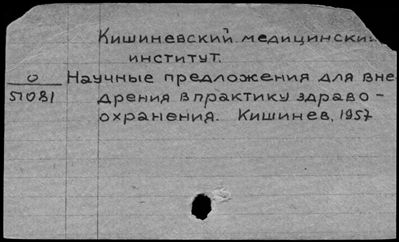 Кишиневский медицинский
институт.
О Научные предложения для вне
51081 дрения в практику здраво-
охранения. Кишинев, 1957